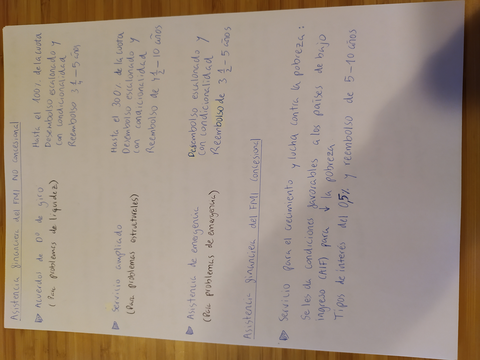 Asistencia financiera del FMI NO concesional
▷ Acuerdos de Dº de giro
(Para problemas de liquidez)
Hasta el 100% de la cuota
Desembolso escalonado y
con condicionalidad
Reembolso 3 1/2 – 5 años
▷ Servicio ampliado
(Para problemas estructurales)
Hasta el 300% de la cuota
Desembolso escalonado y
con condicionalidad
Reembolso de 4 1/2 – 10 años
▷ Asistencia de emergencia
(Para problemas de emergencia)
Desembolso escalonado y
con condicionalidad
Reembolso de 3 1/2 – 5 años
Asistencia financiera del FMI concesional
▷ Servicio para el crecimiento y lucha contra la pobreza:
Se les da condiciones favorables a los países de bajo
ingreso (AIF) para ↓ la pobreza
Tipos de interés del 0,5% y reembolso de 5 – 10 años